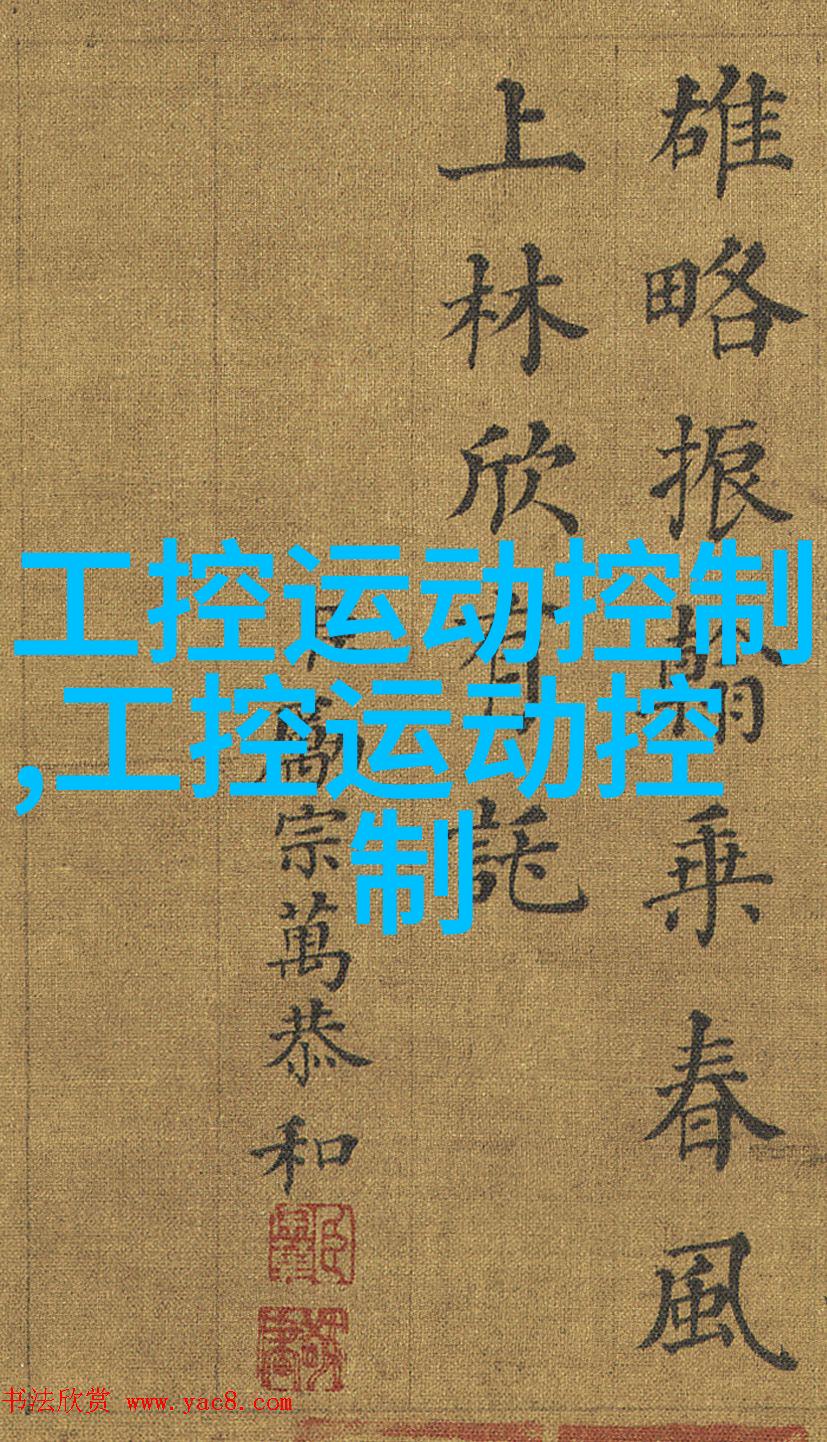 雄略振翰乘春風
上林欣有託
臣
萬宗萬恭和
工控运动控制
,工控运动控
制
书法欣赏 www.yac8.com